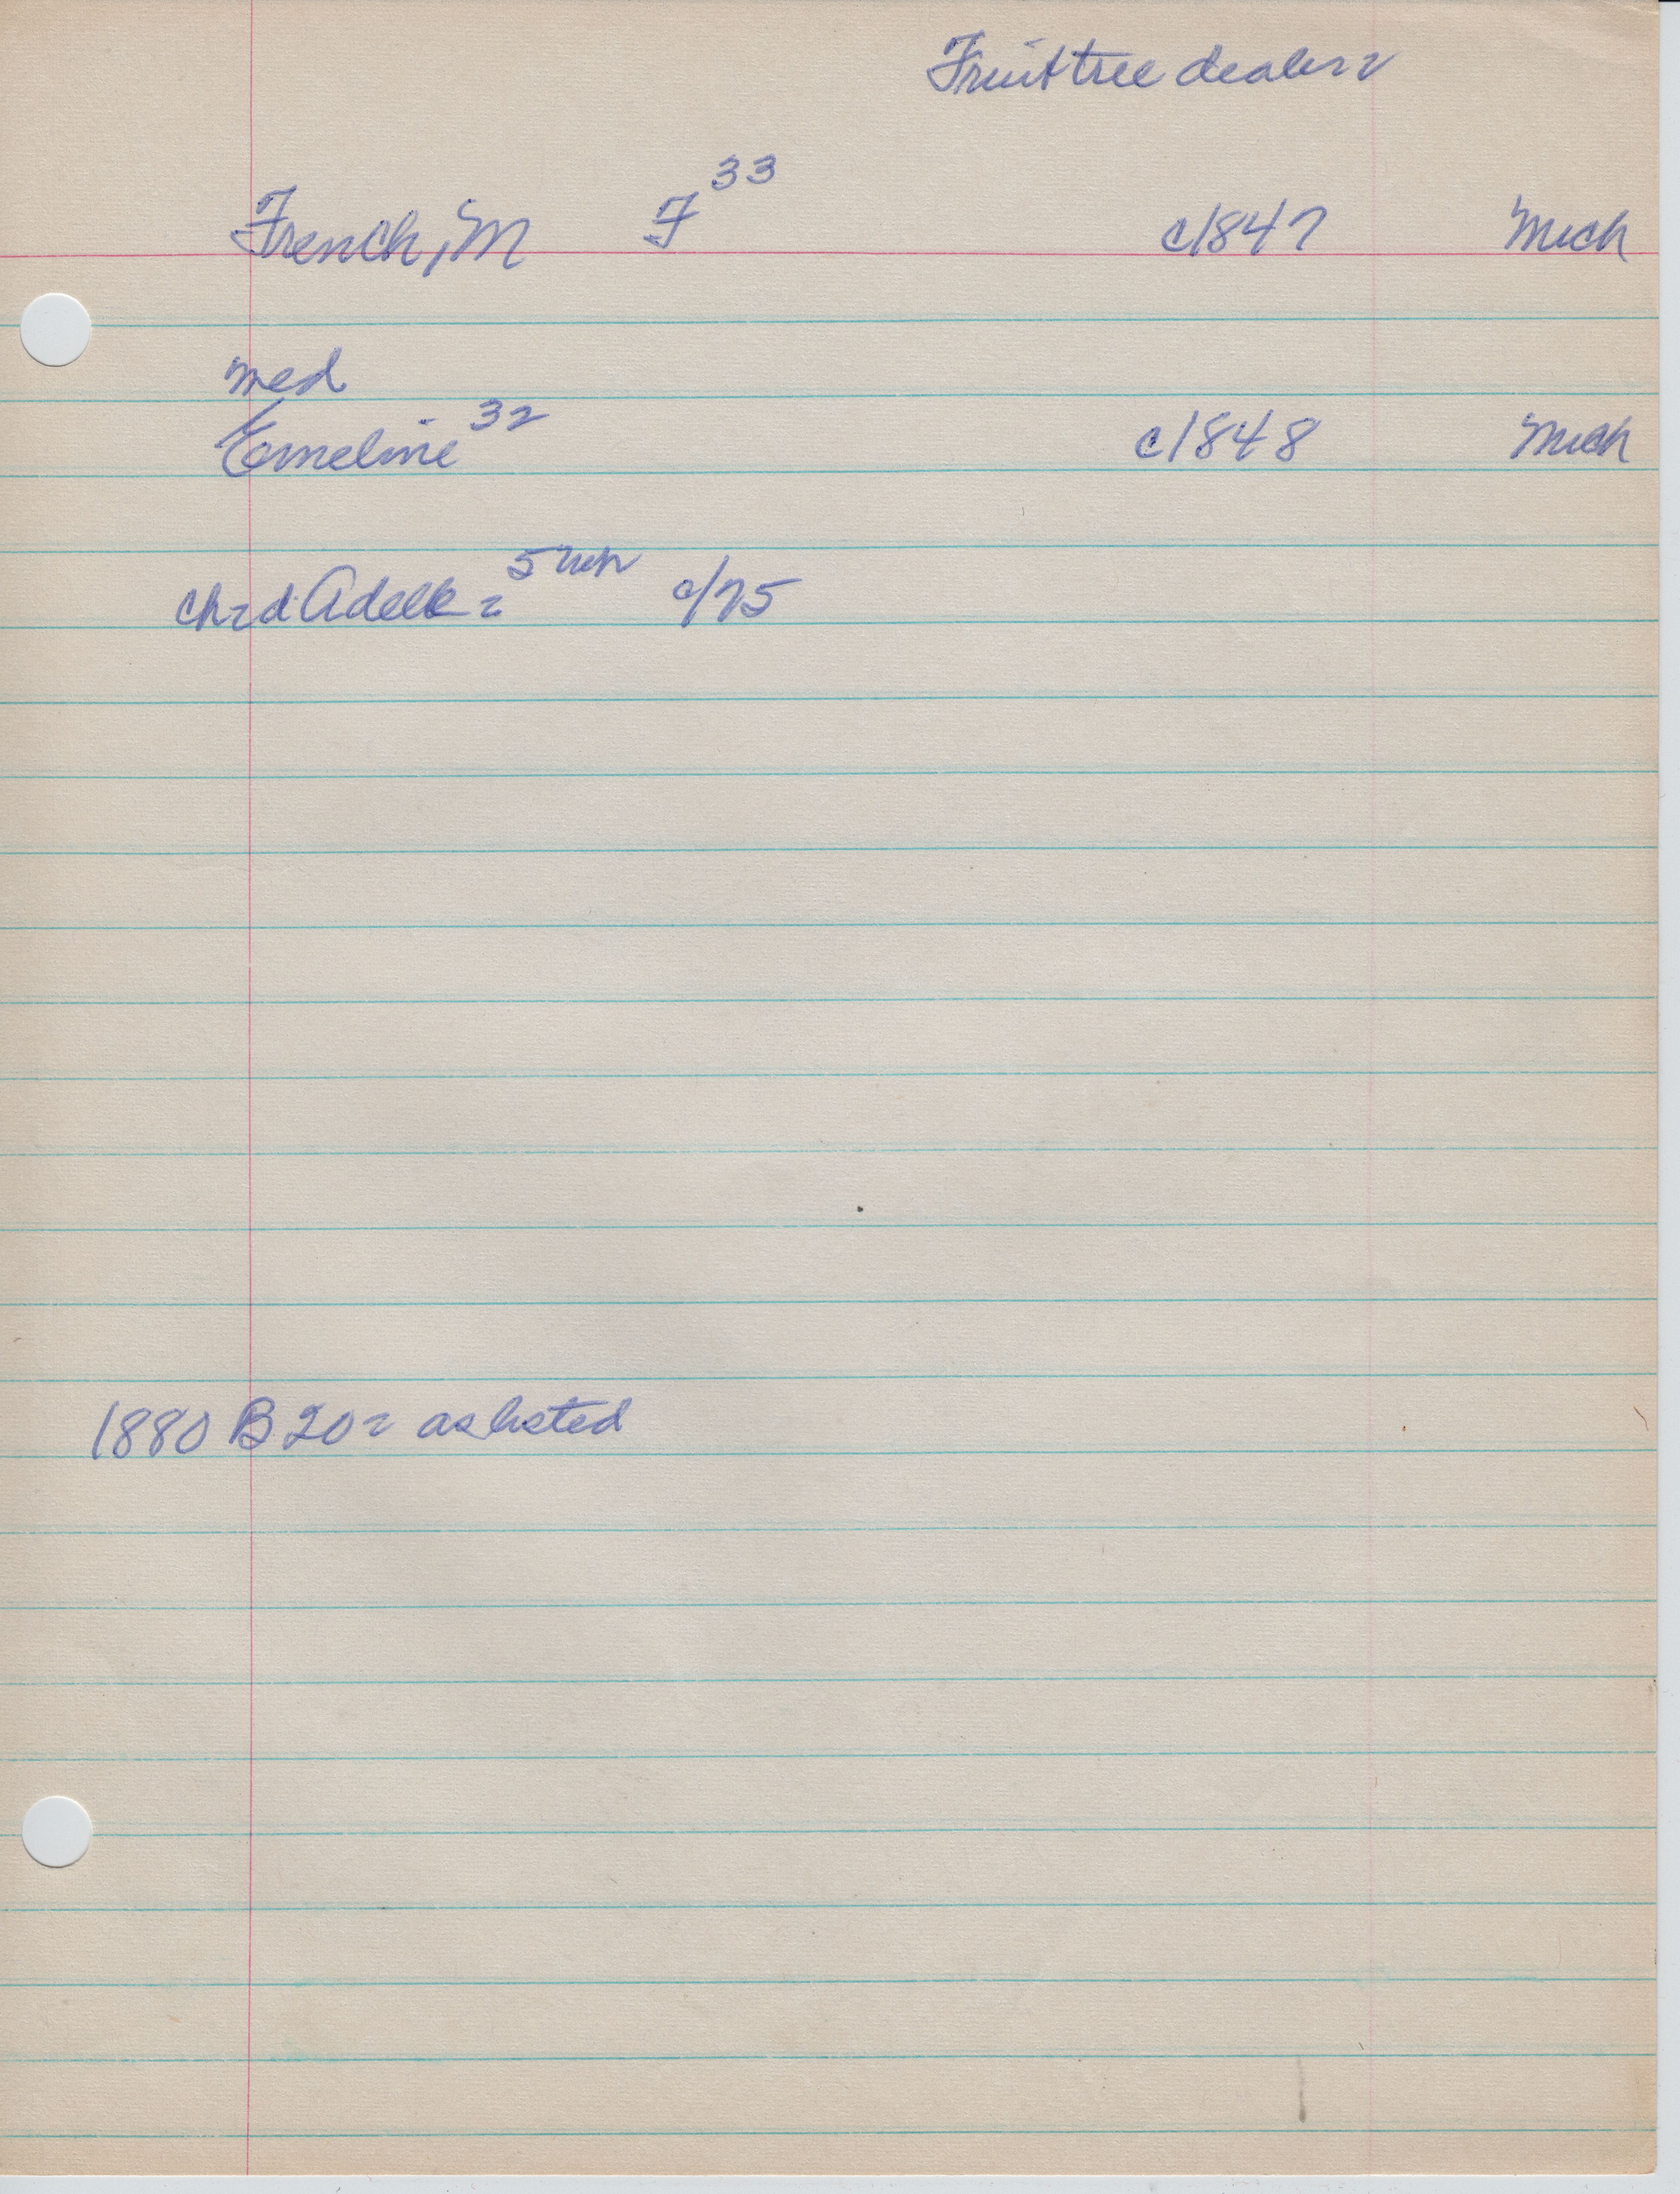 Fruit tree dealer =
French, M F 33 c1847 Mich
med
Emeline 32 c1848 Mich
chrd Adelle = 5 c/75
1880 B 20 = as listed